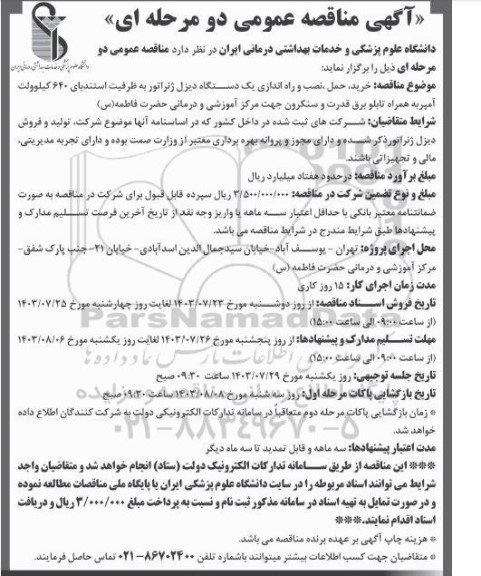 «آگهی مناقصه عمومی دو مرحله ای»
دانشگاه علوم پزشکی و خدمات بهداشتی درمانی ایران
دانشگاه علوم پزشکی و خدمات بهداشتی درمانی ایران در نظر دارد مناقصه عمومی دو
مرحله ای ذیل را برگزار نماید:
موضوع مناقصه: خرید، حمل ،نصب و راه اندازی یک دستگاه دیزل ژنراتور به ظرفیت استندبای ۶۴۰ کیلوولت
آمپر به همراه تابلو برق قدرت و سنکرون جهت مرکز آموزشی و درمانی حضرت فاطمه(س)
شرایط متقاضیان: شرکت های ثبت شده در داخل کشور که در اساسنامه آنها موضوع شرکت، تولید و فروش
دیزل ژنراتور ذکر شده و دارای مجوز و پروانه بهره برداری معتبر از وزارت صمت بوده و دارای تجربه مدیریتی،
مالی و تجهیزاتی باشند.
مبلغ برآورد مناقصه: در حدود هفتاد میلیارد ریال
مبلغ و نوع تضمین شرکت در مناقصه: ۳/۵۰۰/۰۰۰/۰۰۰ ریال سپرده قابل قبول برای شرکت در مناقصه به صورت
ضمانتنامه معتبر بانکی با حداقل اعتبار سه ماهه یا واریز وجه نقد از تاریخ آخرین فرصت تسلیم مدارک و
پیشنهادها طبق شرایط مندرج در شرایط مناقصه می باشد.
محل اجرای پروژه: تهران - یوسف آباد-خیابان سیدجمال الدین اسدآبادی- خیابان ۲۱- جنب پارک شفق-
مرکز آموزشی و درمانی حضرت فاطمه (س)
مدت زمان اجرای کار: ۱۵ روز کاری
تاریخ فروش اسناد مناقصه: از روز دوشنبه مورخ ۱۴۰۳/۰۷/۲۳ لغایت روز چهارشنبه مورخ ۱۴۰۳/۰۷/۲۵
(از ساعت ۰۹:۰۰ الی ساعت ۱۵:۰۰)
مهلت تسلیم مدارک و پیشنهادها: از روز پنجشنبه مورخ ۱۴۰۳/۰۷/۲۶ لغایت روز یکشنبه مورخ ۱۴۰۳/۰۸/۰۶
(از ساعت ۰۹:۰۰ الی ساعت ۱۵:۰۰)
تاریخ جلسه توجیهی: روز یکشنبه مورخ ۱۴۰۳/۰۷/۲۹ ساعت ۰۹:۳۰ صبح
تاریخ بازگشایی پاکات مرحله اول: روز سه شنبه مورخ ۱۴۰۳/۰۸/۰۸ ساعت ۰۹:۳۰ صبح
* زمان بازگشایی پاکات مرحله دوم متعاقباً در سامانه تدارکات الکترونیکی دولت به شرکت کنندگان اطلاع داده
خواهد شد.
مدت اعتبار پیشنهادها: سه ماهه و قابل تمدید تا سه ماه دیگر
*** این مناقصه از طریق سامانه تدارکات الکترونیک دولت (ستاد) انجام خواهد شد و متقاضیان واجد
شرایط می توانند اسناد مربوطه را در سایت دانشگاه علوم پزشکی ایران یا پایگاه ملی مناقصات مطالعه نموده
و در صورت تمایل به تهیه اسناد در سامانه مذکور ثبت نام و نسبت به پرداخت مبلغ ۳/۰۰۰/۰۰۰ ریال و دریافت
اسناد اقدام نمایند.***
* هزینه چاپ آگهی بر عهده برنده مناقصه می باشد.
* متقاضیان جهت کسب اطلاعات بیشتر میتوانند باشماره تلفن ۸۶۷۰۲۴۰۰-۰۲۱ تماس حاصل فرمایند.
ParsNamadData
۰۲۱-۸۸۳۴۹۶۷۰-۵